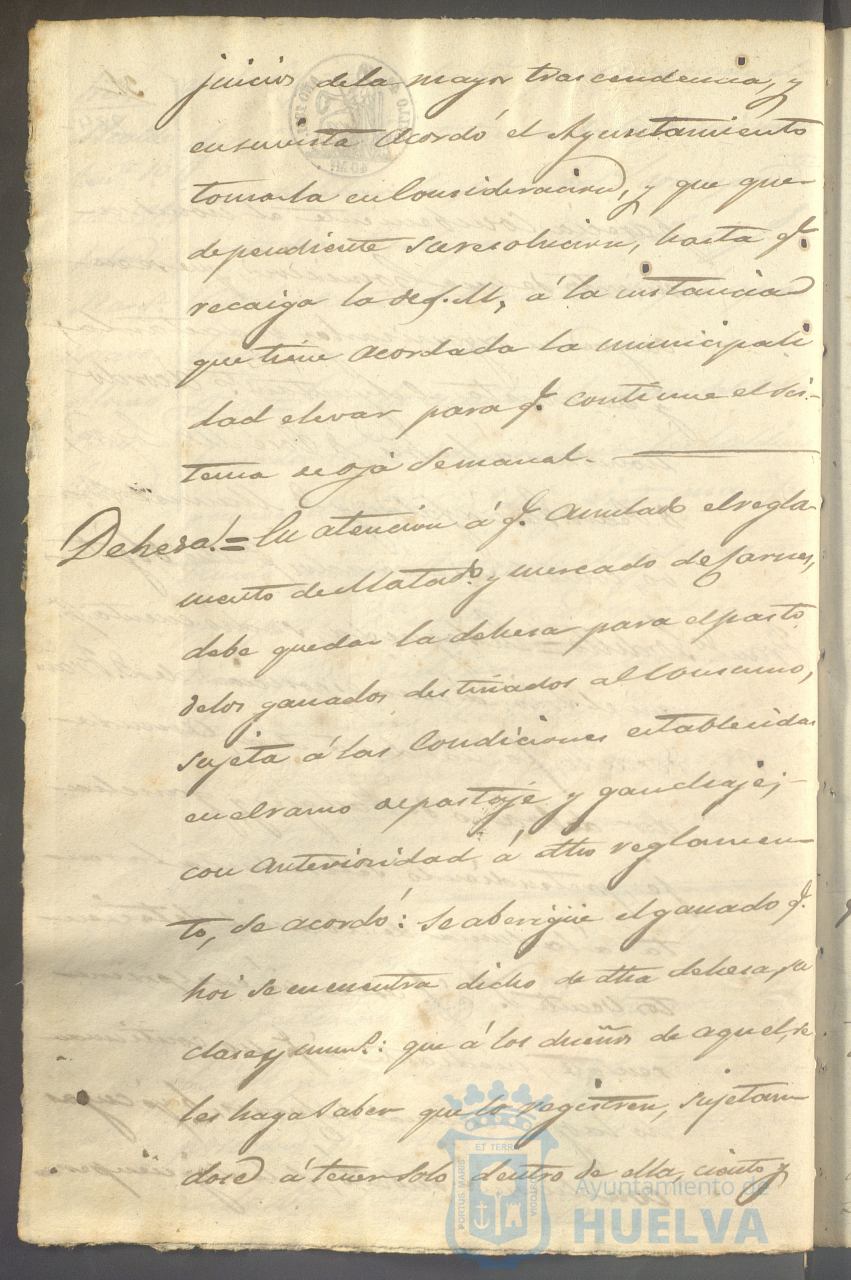 juicios dela mayor trascendencia, y
ensuvista acordó el Ayuntamiento
tomarla en Consideracion, y que que-
dependiente suresolucion, hasta q.
recaiga la deS. M, á la instancia
que tiene acordada la municipali
dad elevar para q. continue el sis-
tema de ojá Semanal.
Dehesa = En atencion á q. anulado el regla-
mento de Matad.o y mercado de Carnes,
debe quedar la dehesa para elpasto
delos ganados destinados al Consumo,
sujeta á las Condiciones establecidas
en elramo depastoje y ganchaje;
con anterioridad á dho reglamen-
to, se acordó: se aberigüe el ganado q.
hoi se encuentra dicho de dha dehesa, su
clase y num.o: que á los dueños de aquel, se
les haga Saber que lo registren, sujetan-
dose á tener solo dentro de ella, ciento y
ET TERR
PORTUS MARIS
CUSTODIA
Ayuntamiento de
HUELVA